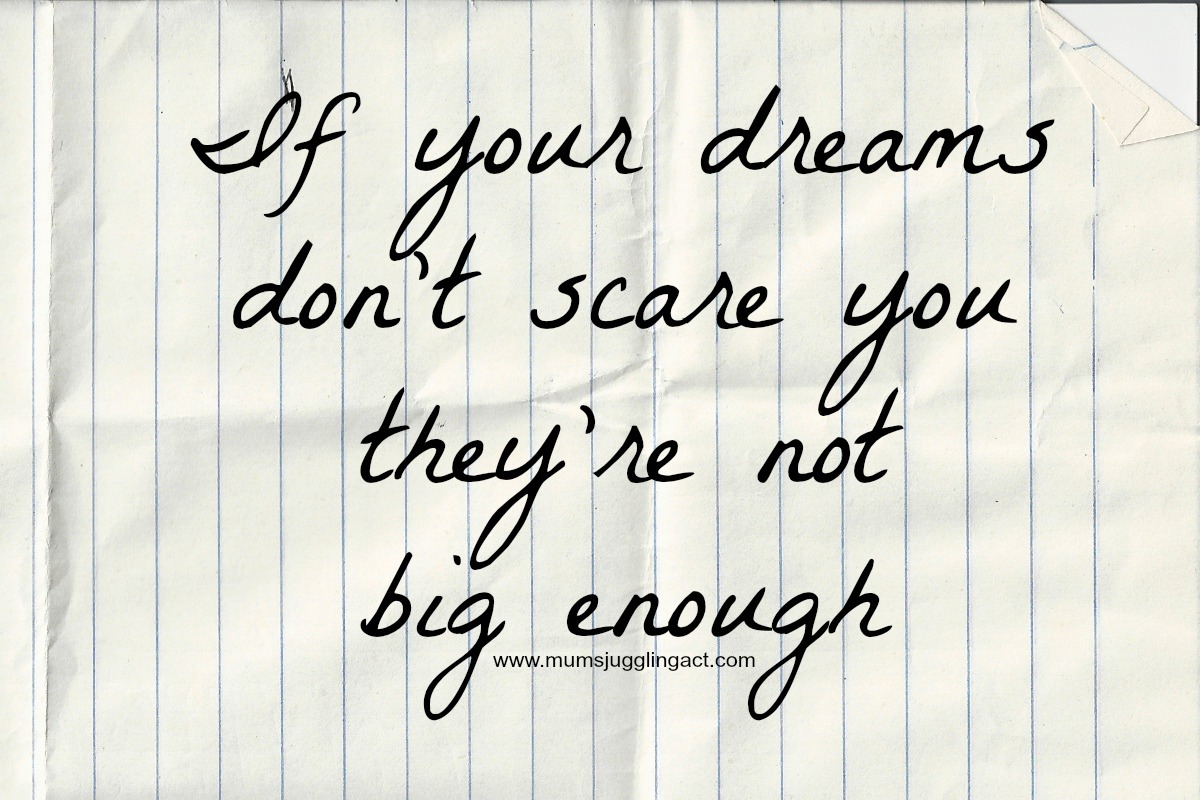 If your dreams
don't scare you
they're not
big enough
www.mumsjugglingact.com